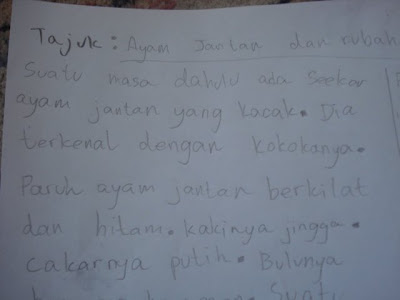 Tajuk: Ayam Jantan dan rubah
Suatu masa dahulu ada seekor
ayam jantan yang kacak. Dia
terkenal dengan kokokanya.
Paruh ayam jantan berkilat
dan hitam. kakinya jingga.
cakarnya putih. Bulunya
Suatu